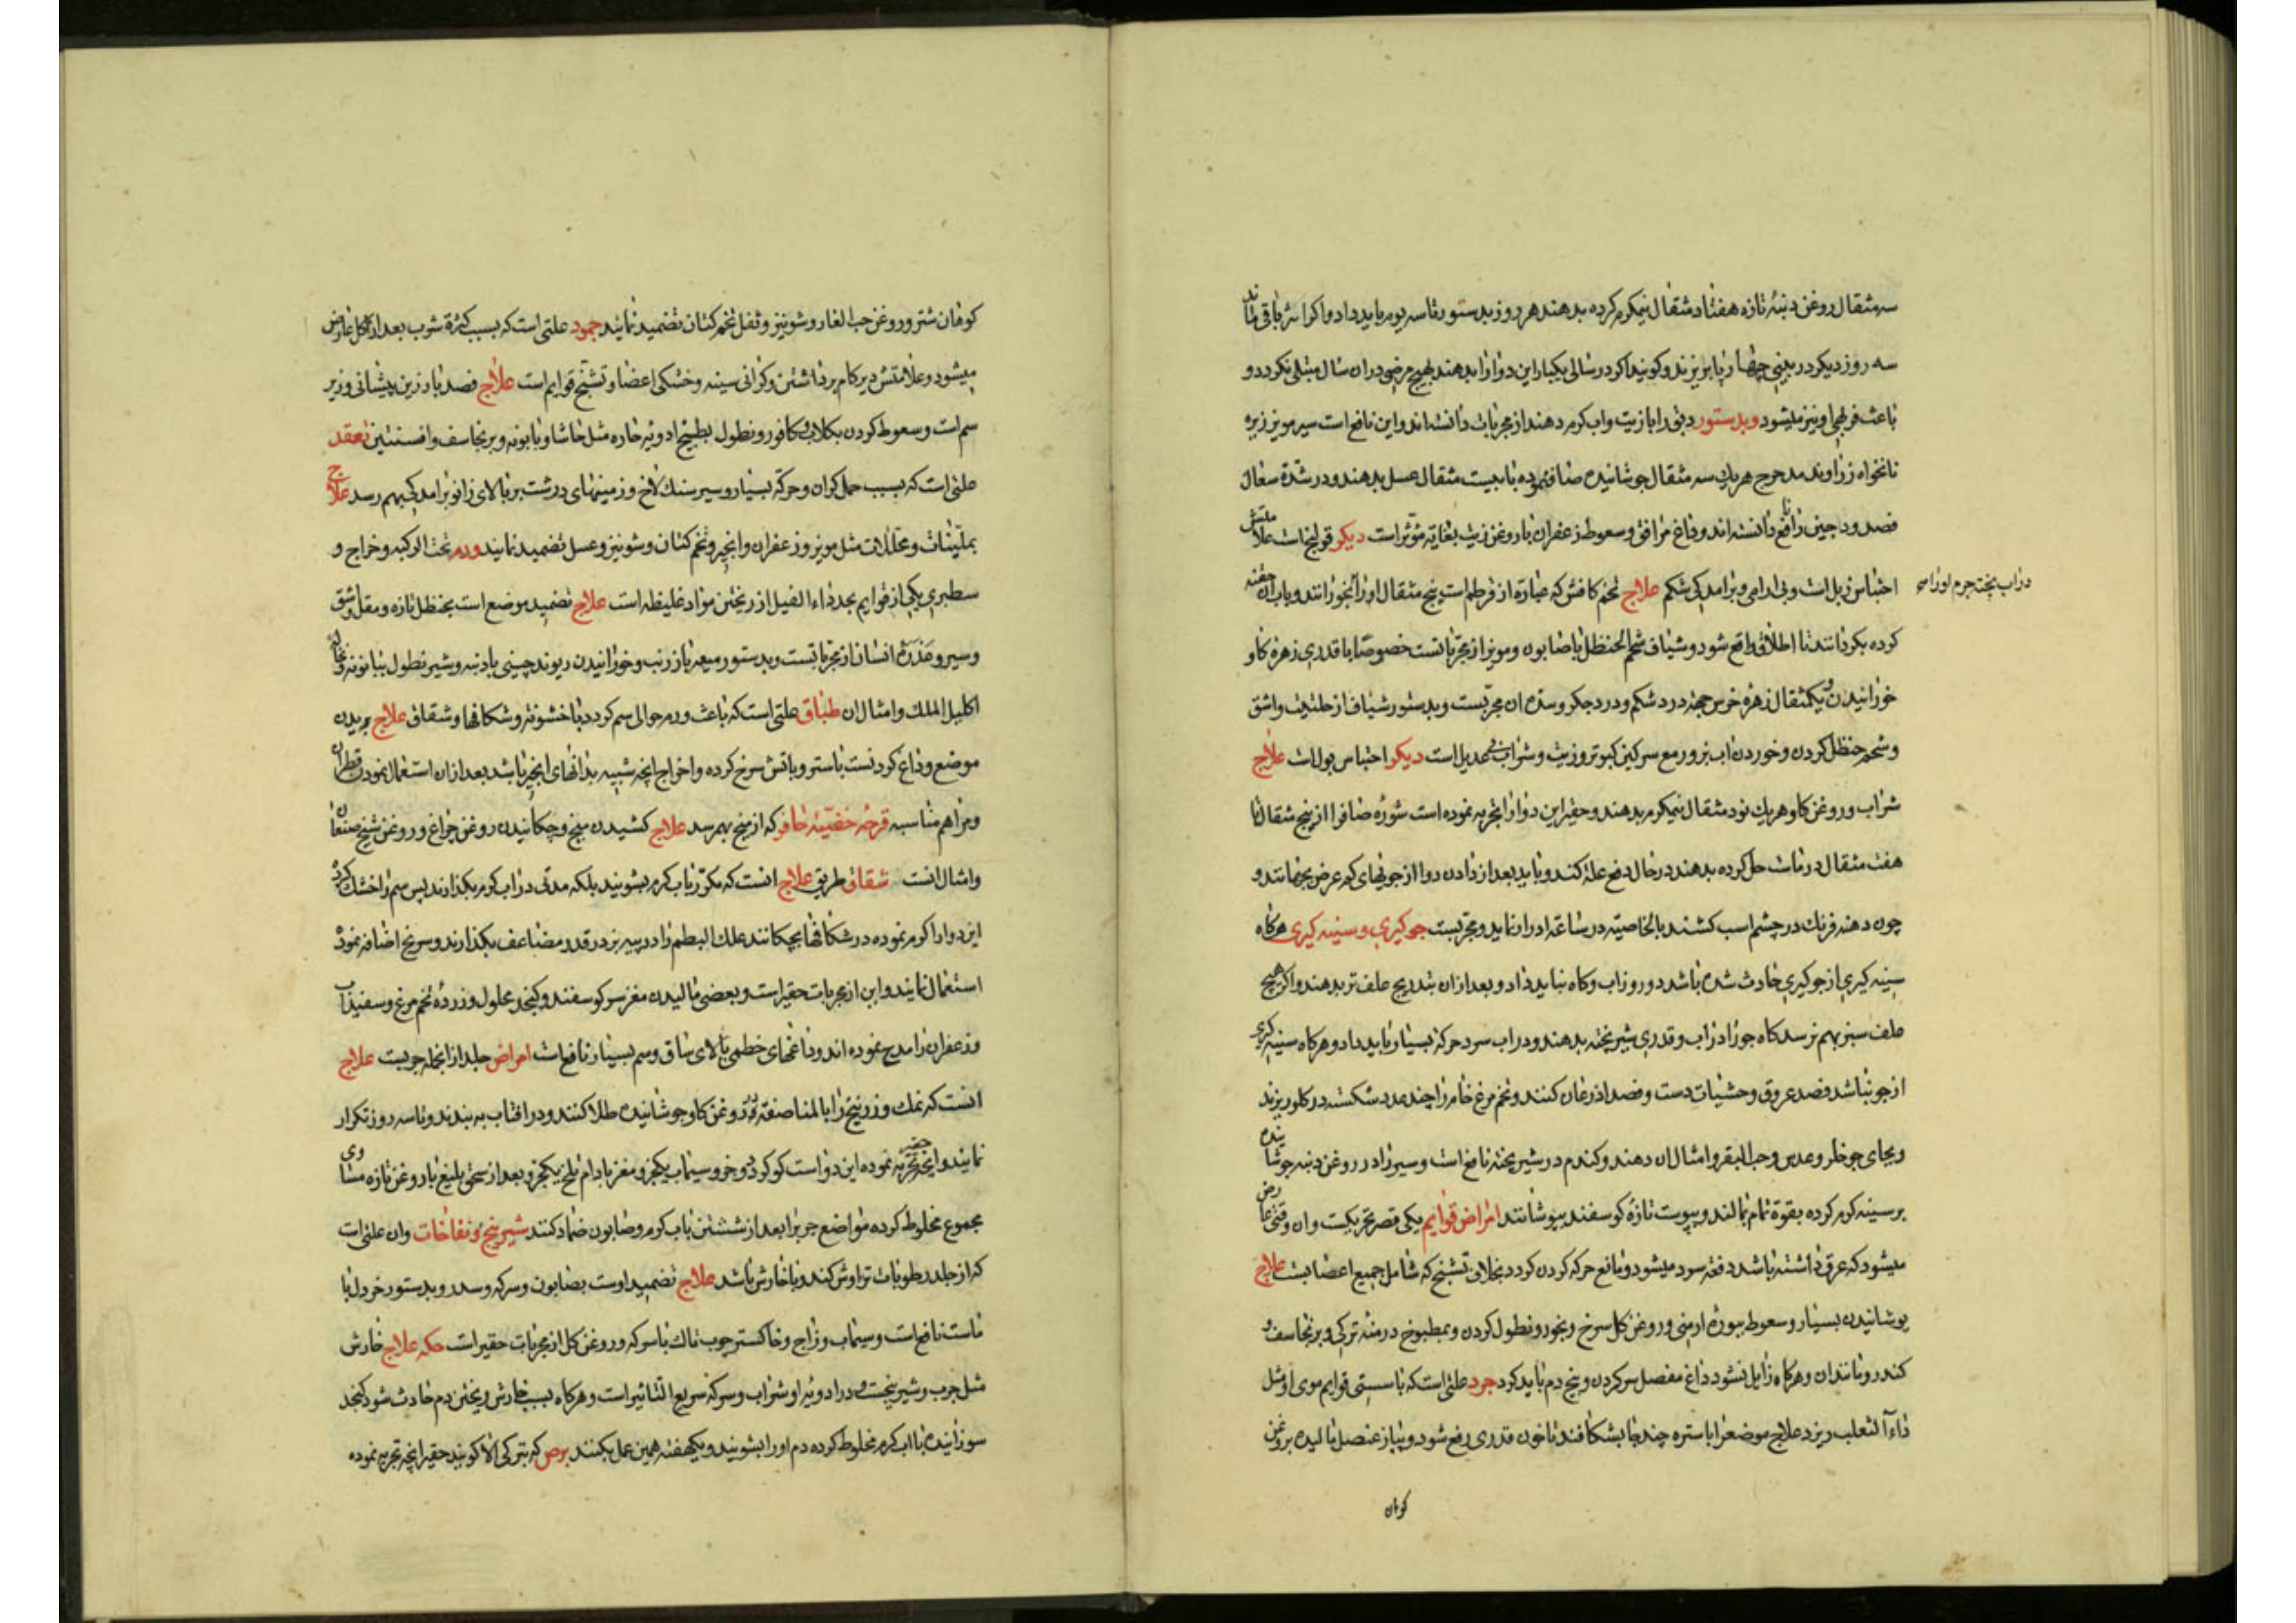 سه مثقال روغن دنبهٔ تازه هفتاد مثقال نیمکرم کرده بدهند هر روز بدستور تا سه یوم باید داد و اکر اثر باقی ماند
سه روز دیکر در بینی چهار پا بریزند و کویند اکر در سالی یکبار این دوا را بدهند بهیچ مرضی در ان سال مبتلی نکردد و
باعث فربهی او نیز میشود وبدستور دبق را با زیت واب کرم دهند از مجربات دانسته اند و این نافع است سیر مویز زیره
نانخواه زراوند مدحرج هریك سه مثقال جوشانیده صاف نموده با بیست مثقال عسل بدهند و در شدّة سعال
فصد ودجین را نافع دانسته اند و داغ مراق و سعوط زعفران با روغن زیت بغایة مؤثر است دیکر قولنج است علامتش
احتباس زبل است و بی ارامی و برامدکی شکم علاج تخم کافشه که عبارة از قرطم است پنج مثقال او را بخورانند و باب ان حقنه
در اب پخته جرم او را سه
کرده بکردانند تا اطلاق واقع شود و شیاف شحم الحنظل با صابون و مویز از مجرباتست خصوصا با قدری زهره کاو
خورانیدن و یکمثقال زهره خرس جهة درد شکم و درد جکر و سده ان مجربست و بدستور شیاف از حلتیت و اشق
و شحم حنظل کردن و خوردن اب بزور مع سرکین کبوتر و زیت و شراب بی عدیل است دیکر احتباس بول است علاج
شراب و روغن کاو هریك نود مثقال نیمکرم بدهند و حقیر این دوا را تجربه نموده است شوره صاف را از پنج مثقال تا
هفت مثقال در ماست حل کرده بدهند در حال دفع علة کند و باید بعد از دادن دوا از جویهای کم عرض بجهانند و
چون دهنه فرنك در چشم اسب کشند بالخاصیة در ساعة ادرار نماید و مجربست جو کیری و سینه کیری هرکاه
سینه کیری از جو کیری حادث شده باشد دو روز اب و کاه نباید داد و بعد از ان بتدریج علف تر بدهند و اکر هیچ
علف سبز بهم نرسد کاه جو را در اب و قدری شیر پخته بدهند و در اب سرد حرکة بسیار باید داد و هرکاه سینه کیری
از جو نباشد فصد عروق وحشیات دست و فصد اذرعان کنند و تخم مرغ خام را چند عدد شکسته در کلو ریزند
و بجای جو خلر و عدس و حب البقر و امثال ان دهند و کندم در شیر پخته نافع است و سیر را در روغن دنبه جوشانیده
بر سینه کرم کرده بقوة تمام بمالند و بپوست تازهٔ کوسفند بپوشانند امراض قوایم یکی قصر تحریکست و ان وقتی عارض
میشود که عرق داشته باشد دفعة سرد میشود و مانع حرکه کردن کردد بخلاف تشنج که شامل جمیع اعضا است علاج
پوشانیدن بسیار و سعوط ببوره ارمنی و روغن کل سرخ و بخور و نطول کردن و بمطبوخ درمنه ترکی و برنجاسف و
کندر و مانند ان و هرکاه زایل نشود داغ مفصل سر کردن و بیخ دم باید کرد جرد علتی است که با سستی قوایم موی او مثل
داء الثعلب ریزد علاج موضع را با ستره چند جا بشکافند تا خون قدری رفع شود و پیاز عنصل مالیده بروغن
کوهان
کوهان شتر و روغن حب الغار و شونیز و ثفل تخم کتان تضمید نمایند جمود علتی است که بسبب کثرة شرب بعد از اکل عارض
میشود و علامتش دیر کام برداشتن و کرانی سینه و خشکی اعضا و تشنج قوایم است علاج فصد بازرین پیشانی و زیر
سم است و سعوط کردن بکلاب و کافور و نطول بطبیخ ادویه حاره مثل حاشا و بابونه و برنجاسف و افسنتین تعقد
علتی است که بسبب حمل کران و حرکة بسیار و سیر سنك لاخ و زمینهای درشت بر بالای زانو برامدکی بهم رسد علاج
بملینات و محللات مثل مویز و زعفران و انجیر و تخم کتان و شونیز و عسل تضمید نمایند ورم تحت الرکبه و خراج و
سطبری یکی از قوایم بحد داء الفیل از ریختن مواد غلیظه است علاج تضمید موضع است بحنظل تازه و مقل و اشق
و سیر و عذرهٔ انسان از مجرباتست و بدستور میعه با زرنب و خورانیدن ریوند چینی با دنبه و شیر و نطول ببابونه و نخاله و
اکلیل الملك و امثال ان طباق علتی است که باعث ورم حوالی سم کردد با خشونة و شکافها و شقاق علاج بریدن
موضع و داغ کردنست با ستر و با تش سرخ کرده و اخراج انچه شبیه بدانهای انجیر باشد بعد از ان استعمال نمودن قطران
و مراهم مناسبه قرحهٔ خفیّهٔ حافر که از میخ بهم رسد علاج کشیدن میخ و چکانیدن روغن چراغ و روغن شیخ صنعان
و امثال انست شقاق طریق علاج انست که مکرّر باب کرم بشویند بلکه مدتی در اب کرم بکذارند پس سم را خشك کرده
این دوا را کرم نموده در شکافها بچکانند علك البطم را در پیه بز در قدر مضاعف بکذارند و سریخ اضافه نموده
استعمال نمایند و این از مجربات حقیر است و بعضی مالیدن مغز سر کوسفند و کنجد محلول و زرده تخم مرغ و سفیداب
و زعفران را مدح نموده اند و داغهای خطمی بالای ساق و سم بسیار نافع است امراض جلد از انجمله جربست علاج
انست که نمك و زرنیخ را بالمناصفه در روغن کاو جوشانیده طلا کنند و در افتاب به بندند و تا سه روز تکرار
نمایند و انچه حقیر تجربه نموده این دوا است کوکرد دو جزو سیماب یکجزو مغز بادام تلخ یکجزو بعد از سحق بلیغ با روغن تازه مساوی
مجموع مخلوط کرده مواضع جرب را بعد از شستن باب کرم و صابون ضماد کنند شیرینج و نفاخات و ان علتی است
که از جلد رطوبات تراوش کند و با خارش باشد علاج تضمید اوست بصابون و سرکه و سدر و بدستور خردل با
ماست نافع است و سیماب و زاج و خاکستر چوب تاك با سرکه و روغن کل از مجربات حقیر است حکه علاج خارش
مثل جرب و شیرینجست و در ادویهٔ او شراب و سرکه سریع التاثیر است و هرکاه بسبب خارش ریختن دم حادث شود کنجد
سوزانیده با اب کرم مخلوط کرده دم او را بشویند و یکهفته همین عمل بکنند برص که بترکی الا کویند حقیر انچه تجربه نموده